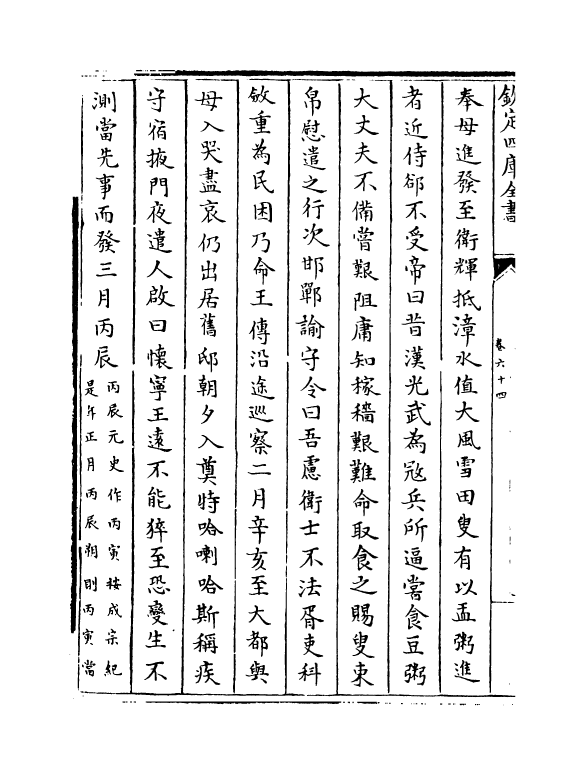 欽定四庫全書
卷六十四
奉母進發至衛輝抵漳水值大風雪田叟有以盂粥進
者近侍郤不受帝曰昔漢光武為冦兵所逼嘗食豆粥
大丈夫不備嘗艱阻庸知稼穡艱難命取食之賜叟束
帛慰遣之行次邯鄲諭守令曰吾慮衛士不法胥吏科
斂重為民困乃命王傅沿途巡察二月辛亥至大都與
母入哭盡哀仍出居舊邸朝夕入奠時哈喇哈斯稱疾
守宿掖門夜遣人啟曰懷寧王遠不能猝至恐變生不
測當先事而發三月丙辰
丙辰元史作丙寅按成宗紀
是年正月丙辰朔則丙寅當